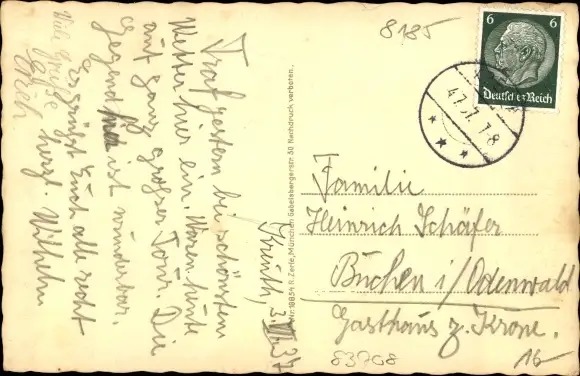 Kreuth, 3.VII.37
Traf gestern bei schönstem
Wetter hier ein. Waren heute
auf ganz großer Tour. Die
Gegend hier ist wunderbar.
Es grüßt Euch alle recht
herzl. Wilhelm
Viele Grüsse
Erich
Nr. 18834 R. Zerle, München Gabelsbergerstr. 30 Nachdruck verboten.
8185
6 6
Deutsches Reich
4.7.37. 7-8
Familie
Heinrich Schäfer
Buchen i/Odenwald
Gasthaus z. Krone.
83708
16-